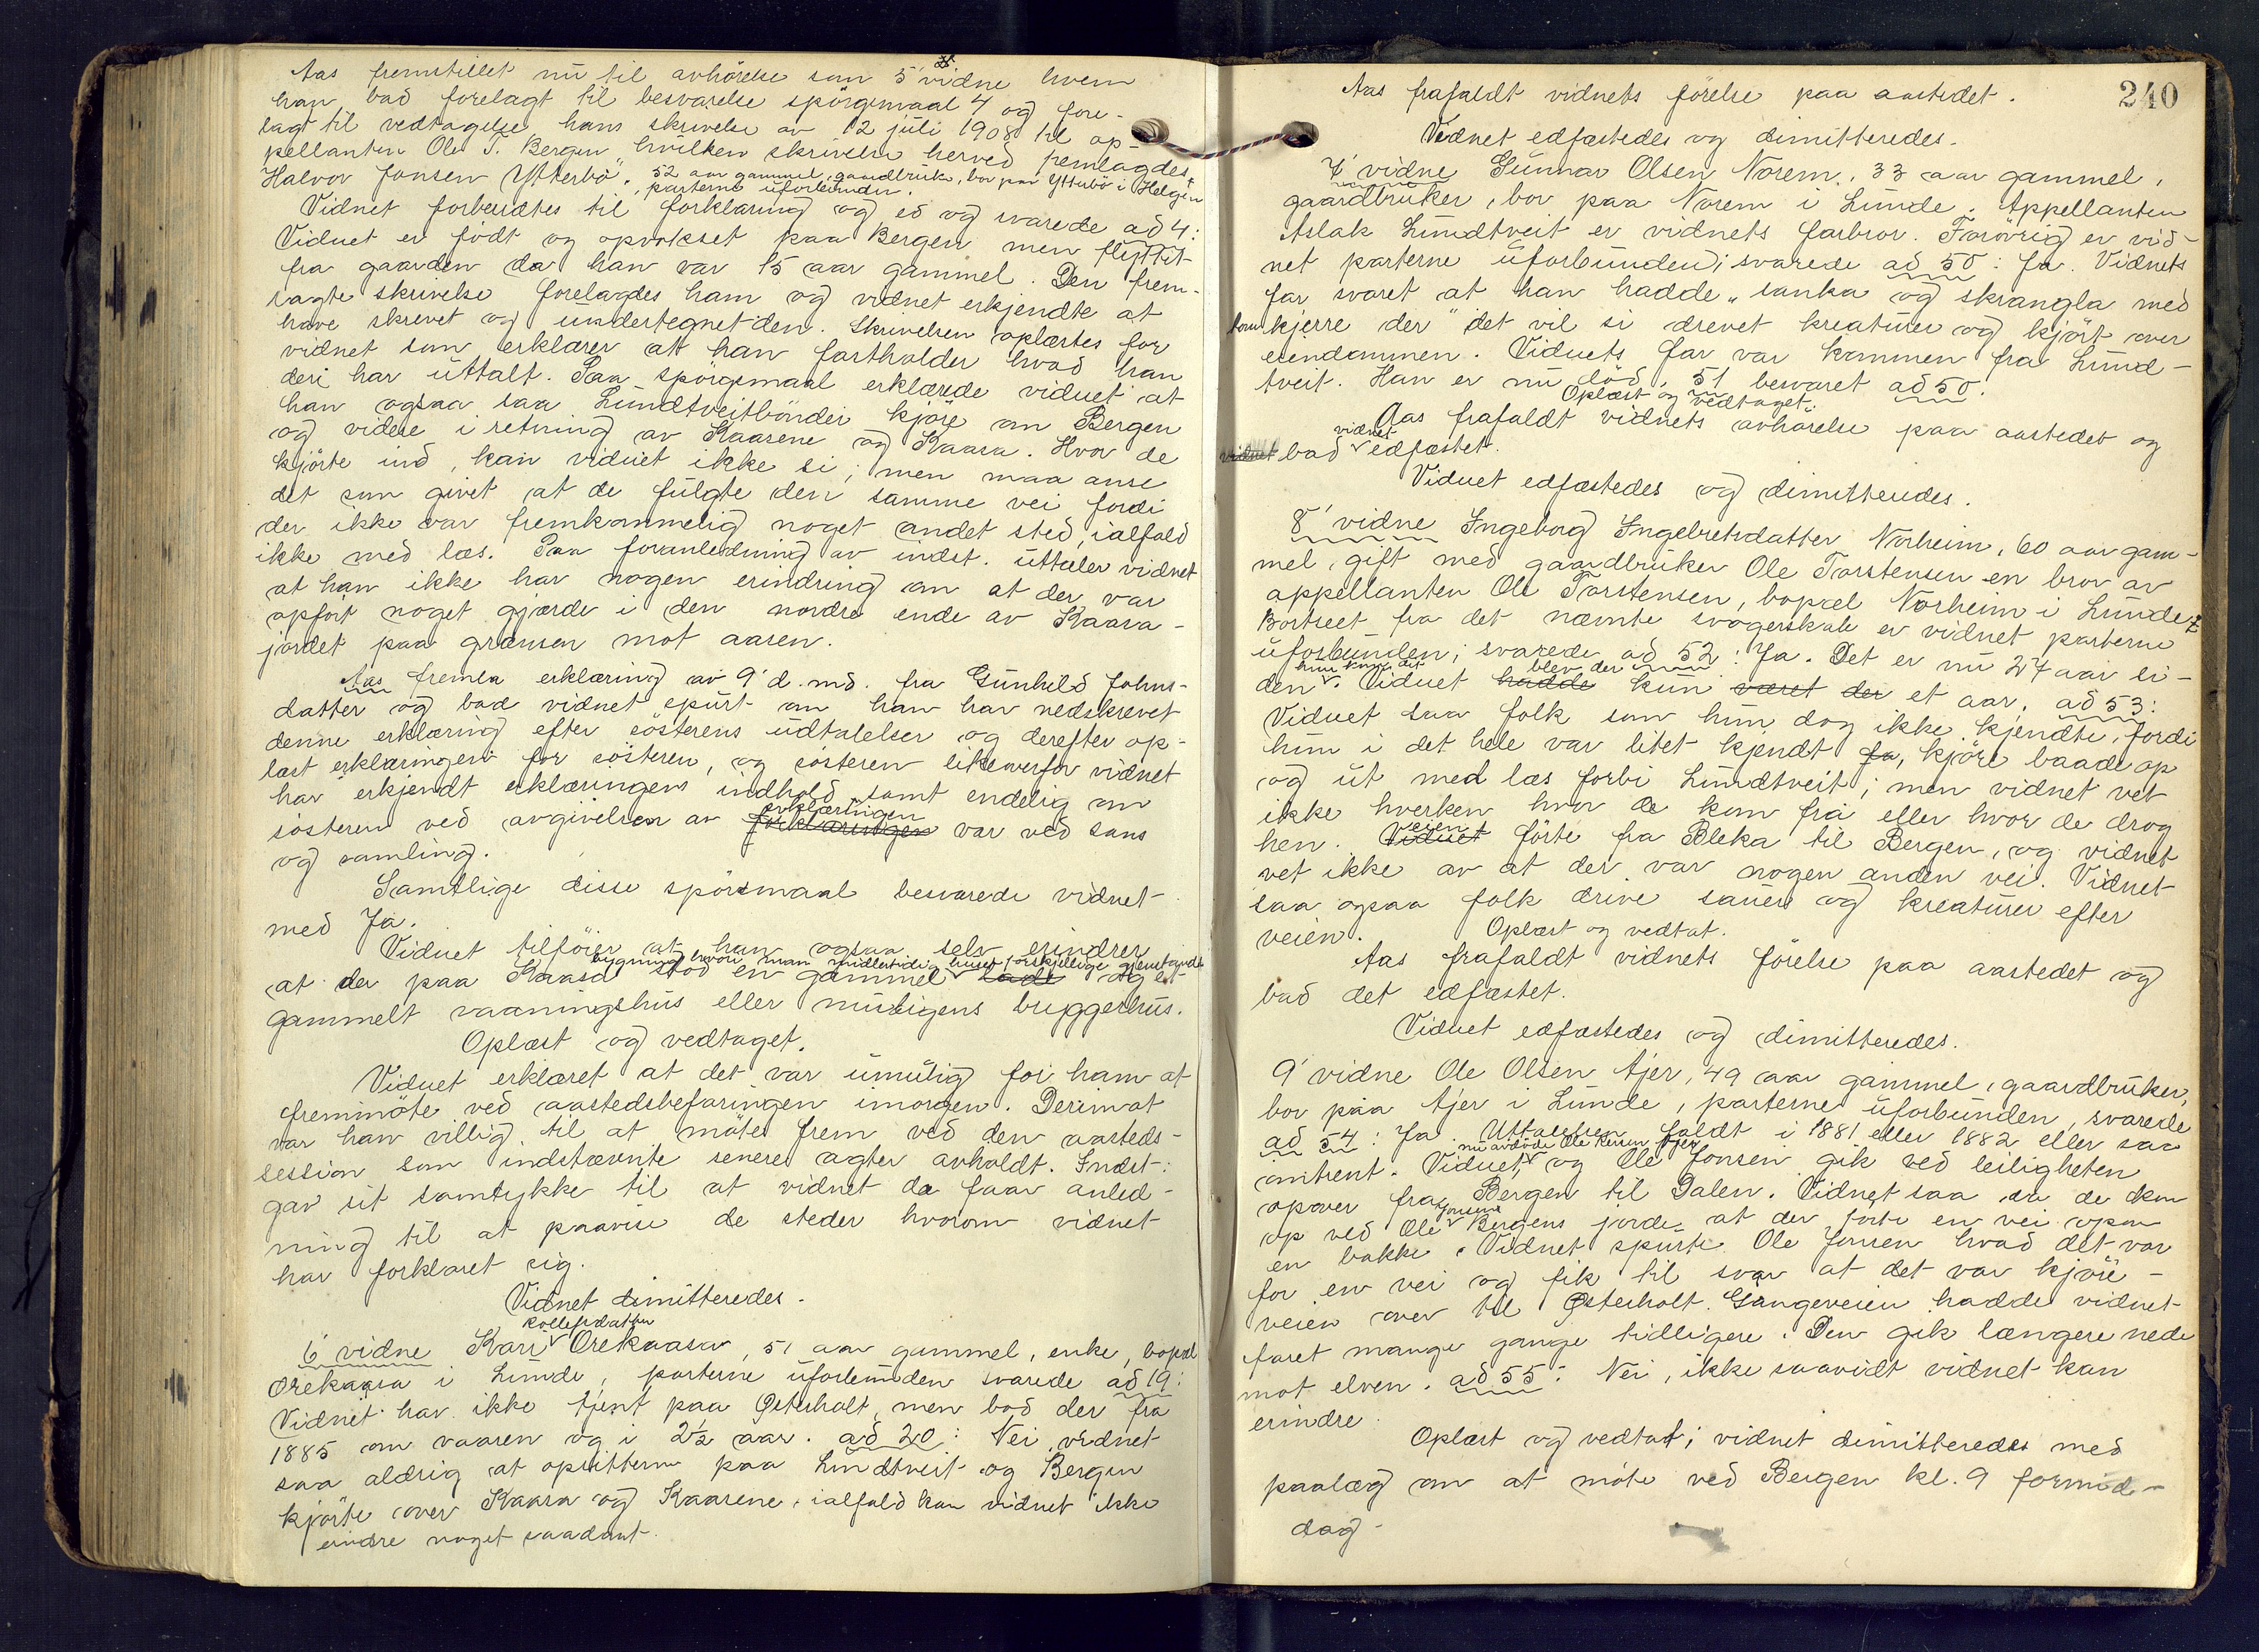 Aas fremstillet nu til avhørelse som 5' vidne hvem
han bad forelagt til besvarelse spörgsmaal 4 og fore-
lagt til vedtagelse hans skrivelse av 12 juli 1908 til ap-
pellanten Ole T. Bergen hvilken skrivelse herved fremlagdes.
Halvor Jonsen Ytterbö, 52 aar gammel, gaardbruker, bor paa Ytterbö i Helgen
parterne uforbunden.
Vidnet forberedtes til forklaring og ed og svarede ad 4:
Vidnet er födt og opvokset paa Bergen men flyttet
fra gaarden da han var 15 aar gammel. Den frem-
lagte skrivelse forelagdes ham og vidnet erkjendte at
have skrevet og undertegnet den. Skrivelsen oplæstes for
vidnet som erklærer at han fastholder hvad han
deri har uttalt. Paa spörgsmaal erklærede vidnet at
han ogsaa saa Lundtveitbönder kjöre om Bergen
og videre i retning av Kaasene og Kaasa. Hvor de
kjörte ind, kan vidnet ikke si; men maa anse
det som givet at de fulgte den samme vei fordi
der ikke var fremkommelig noget andet sted, ialfald
ikke med læs. Paa foranledning av indst. uttaler vidnet
at han ikke har nogen erindring om at der var
opfört noget gjærde i den nordre ende av Kaasa-
jordet paa grænsen mot aasen.
Aas fremla erklæring av 9' d. md. fra Gunhild Johns-
datter og bad vidnet spurt om han har nedskrevet
denne erklæring efter sösterens udtalelser og derefter op-
læst erklæringen for sösteren, og sösteren likeoverfor vidnet
har erkjendt erklæringens indhold samt endelig om
erklæringen
sösteren ved avgivelsen av forklaringen var ved sans
og samling.
Samtlige disse spörsmaal besvarede vidnet
med Ja.
Vidnet tilföier at han ogsaa selv erindrer
bygning hvori man midlertidig huset forskjellige gjenstande
at der paa Kaasa stod en gammel lade og et
gammelt vaaningshus eller muligens bryggerhus.
Oplæst og vedtaget.
Vidnet erklæret at det var umulig for ham at
fremmöte ved aastedsbefaringen imorgen. Derimot
var han villig til at möte frem ved den aasteds-
session som indstævnte senere agter avholdt. Indst.:
gav sit samtykke til at vidnet da faar anled-
ning til at paavise de steder hvorom vidnet
har forklaret sig.
Vidnet dimitteredes.
Kollefsdatter
6' vidne Kari Orekaasa, 51 aar gammel, enke, bopæl
Orekaasa i Lunde, parterne uforbunden svarede ad 19:
Vidnet har ikke tjent paa Østerholt, men bod der fra
1885 om vaaren og i 2½ aar. ad 20: Nei vidnet
saa aldrig at opsitterne paa Lundtveit og Bergen
kjörte over Kaasa og Kaasene, ialfald kan vidnet ikke
erindre noget saadant.
240
Aas frafaldt vidnets förelse paa aastedet.
Vidnet edfæstedes og dimitteredes.
7' vidne Gunnar Olsen Norem, 33 aar gammel,
gaardbruker, bor paa Norem i Lunde. Appellanten
Aslak Lundtveit er vidnets farbror. Forövrig er vid-
net parterne uforbunden; svarede ad 50: Ja. Vidnets
far svaret at han hadde "lanka og skrangla med
kjerre der" det vil si drevet kreaturer og kjört over
eiendommen. Vidnets far var kommen fra Lund-
tveit. Han er nu död. 51 besvaret ad 50.
Oplæst og vedtaget.
Aas frafaldt vidnets avhörelse paa aastedet og
vidnet
vidnet bad edfæstet.
Vidnet edfæstedes og dimitteredes.
8' vidne Ingeborg Ingebretsdatter Norheim, 60 aar gam-
mel, gift med gaardbruker Ole Torstensen en bror av
appellanten Ole Torstensen, bopæl Norheim i Lunde.
Bortseet fra det nævnte svogerskab er vidnet parterne
uforbunden; svarede ad 52: Ja. Det er nu 27 aar si-
hun kom dit blev der
den. Vidnet hadde kun været der et aar. ad 53:
Vidnet saa folk som hun dog ikke kjendte, fordi
hun i det hele var litet kjendt fa, kjöre baade op
og ut med læs forbi Lundtveit; men vidnet vet
ikke hverken hvor de kom fra eller hvor de drog
veien
hen. Vidnet förte fra Bleka til Bergen, og vidnet
vet ikke av at der var nogen anden vei. Vidnet
saa ogsaa folk drive sauer og kreaturer efter
veien. Oplæst og vedtat.
Aas frafaldt vidnets förelse paa aastedet og
bad det edfæstet.
Vidnet edfæstedes og dimitteredes.
9' vidne Ole Olsen Ajer, 49 aar gammel, gaardbruker,
bor paa Ajer i Lunde, parterne uforbunden, svarede
ad 54: Ja. Uttalelsen faldt i 1881 eller 1882 eller saa
nu avdöde Ole Ajer
omtrent. Vidnet og Ole Jonsen gik ved leiligheten
opover fra Bergen til Dalen. Vidnet saa da de kom
Jonsens
op ved Ole Bergens jorde at der förte en vei opom
en bakke. Vidnet spurte Ole Jonsen hvad det var
for en vei og fik til svar at det var kjöre-
veien over til Østerholt. Gangeveien hadde vidnet
faret mange gange tidligere. Den gik længere nede
mot elven. ad 55: Nei, ikke saavidt vidnet kan
erindre.
Oplæst og vedtat; vidnet dimitteredes med
paalæg om at möte ved Bergen kl. 9 formid-
dag.